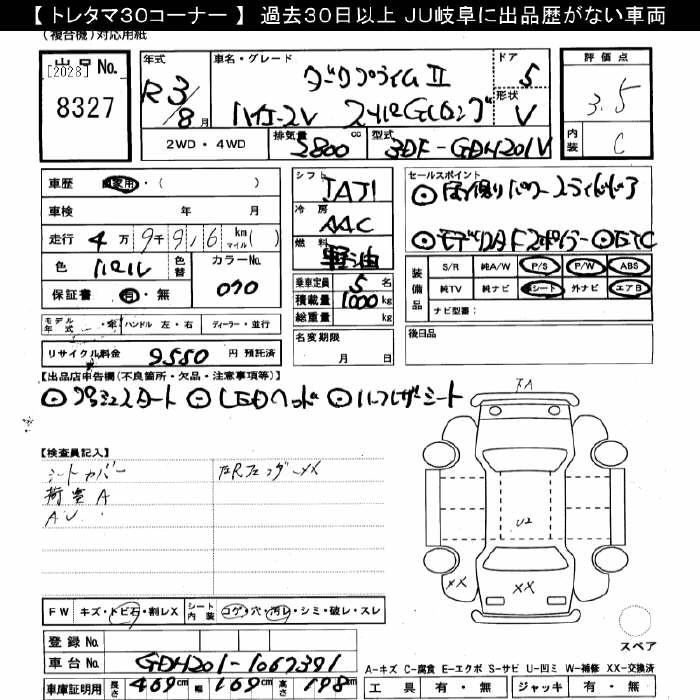 【 トレタマ30コーナー 】 過去30日以上 JU岐阜に出品歴がない車両
(複合機)対応用紙
出品 No. [2028] 8327
年式 R3/8月
車名・グレード ダークプライムⅡ
ハイエースV スーパーGLロング
ドア 5
形状 V
評価点 3.5
内装 C
2WD・4WD
排気量 2800 cc
型式 3DF-GDH201V
車歴 自家用・( )
車検 年 月
走行 4万9千916 km マイル( )
色 パール
色替
カラーNo. 070
保証書 有・無
シフト IAT
冷房 AAC
燃料 軽油
乗車定員 5 名
積載量 1000 kg
総重量 kg
セールスポイント
⊙両側パワースライドドア
⊙モデリスタFスポイラー ⊙ETC
装備品 S/R 純A/W P/S P/W ABS
純TV 純ナビ 革シート 外ナビ エアB
ナビ型番:
モデル年式 ・年 ハンドル 左・右 ディーラー・並行
リサイクル料金 9550 円 預託済
名変期限 月 日
後日品
【出品店申告欄(不良箇所・欠品・注意事項等)】
⊙プッシュスタート ⊙LEDヘッド ⊙ハーフレザーシート
【検査員記入】
シートカバー
荷室A
AU
左Rフェンダーxx
FA
U2
XX
XX
FW キズ・トビ石・割レX
シート内装 コゲ・穴・汚レ・シミ・破レ・スレ
スペア
登録 No.
車台 No. GDH201-1067391
車庫証明用 長さ 469cm 幅 169cm 高さ 198cm
A-キズ C-腐食 E-エクボ S-サビ U-凹ミ W-補修 XX-交換済
工具 有・無 ジャッキ 有・無